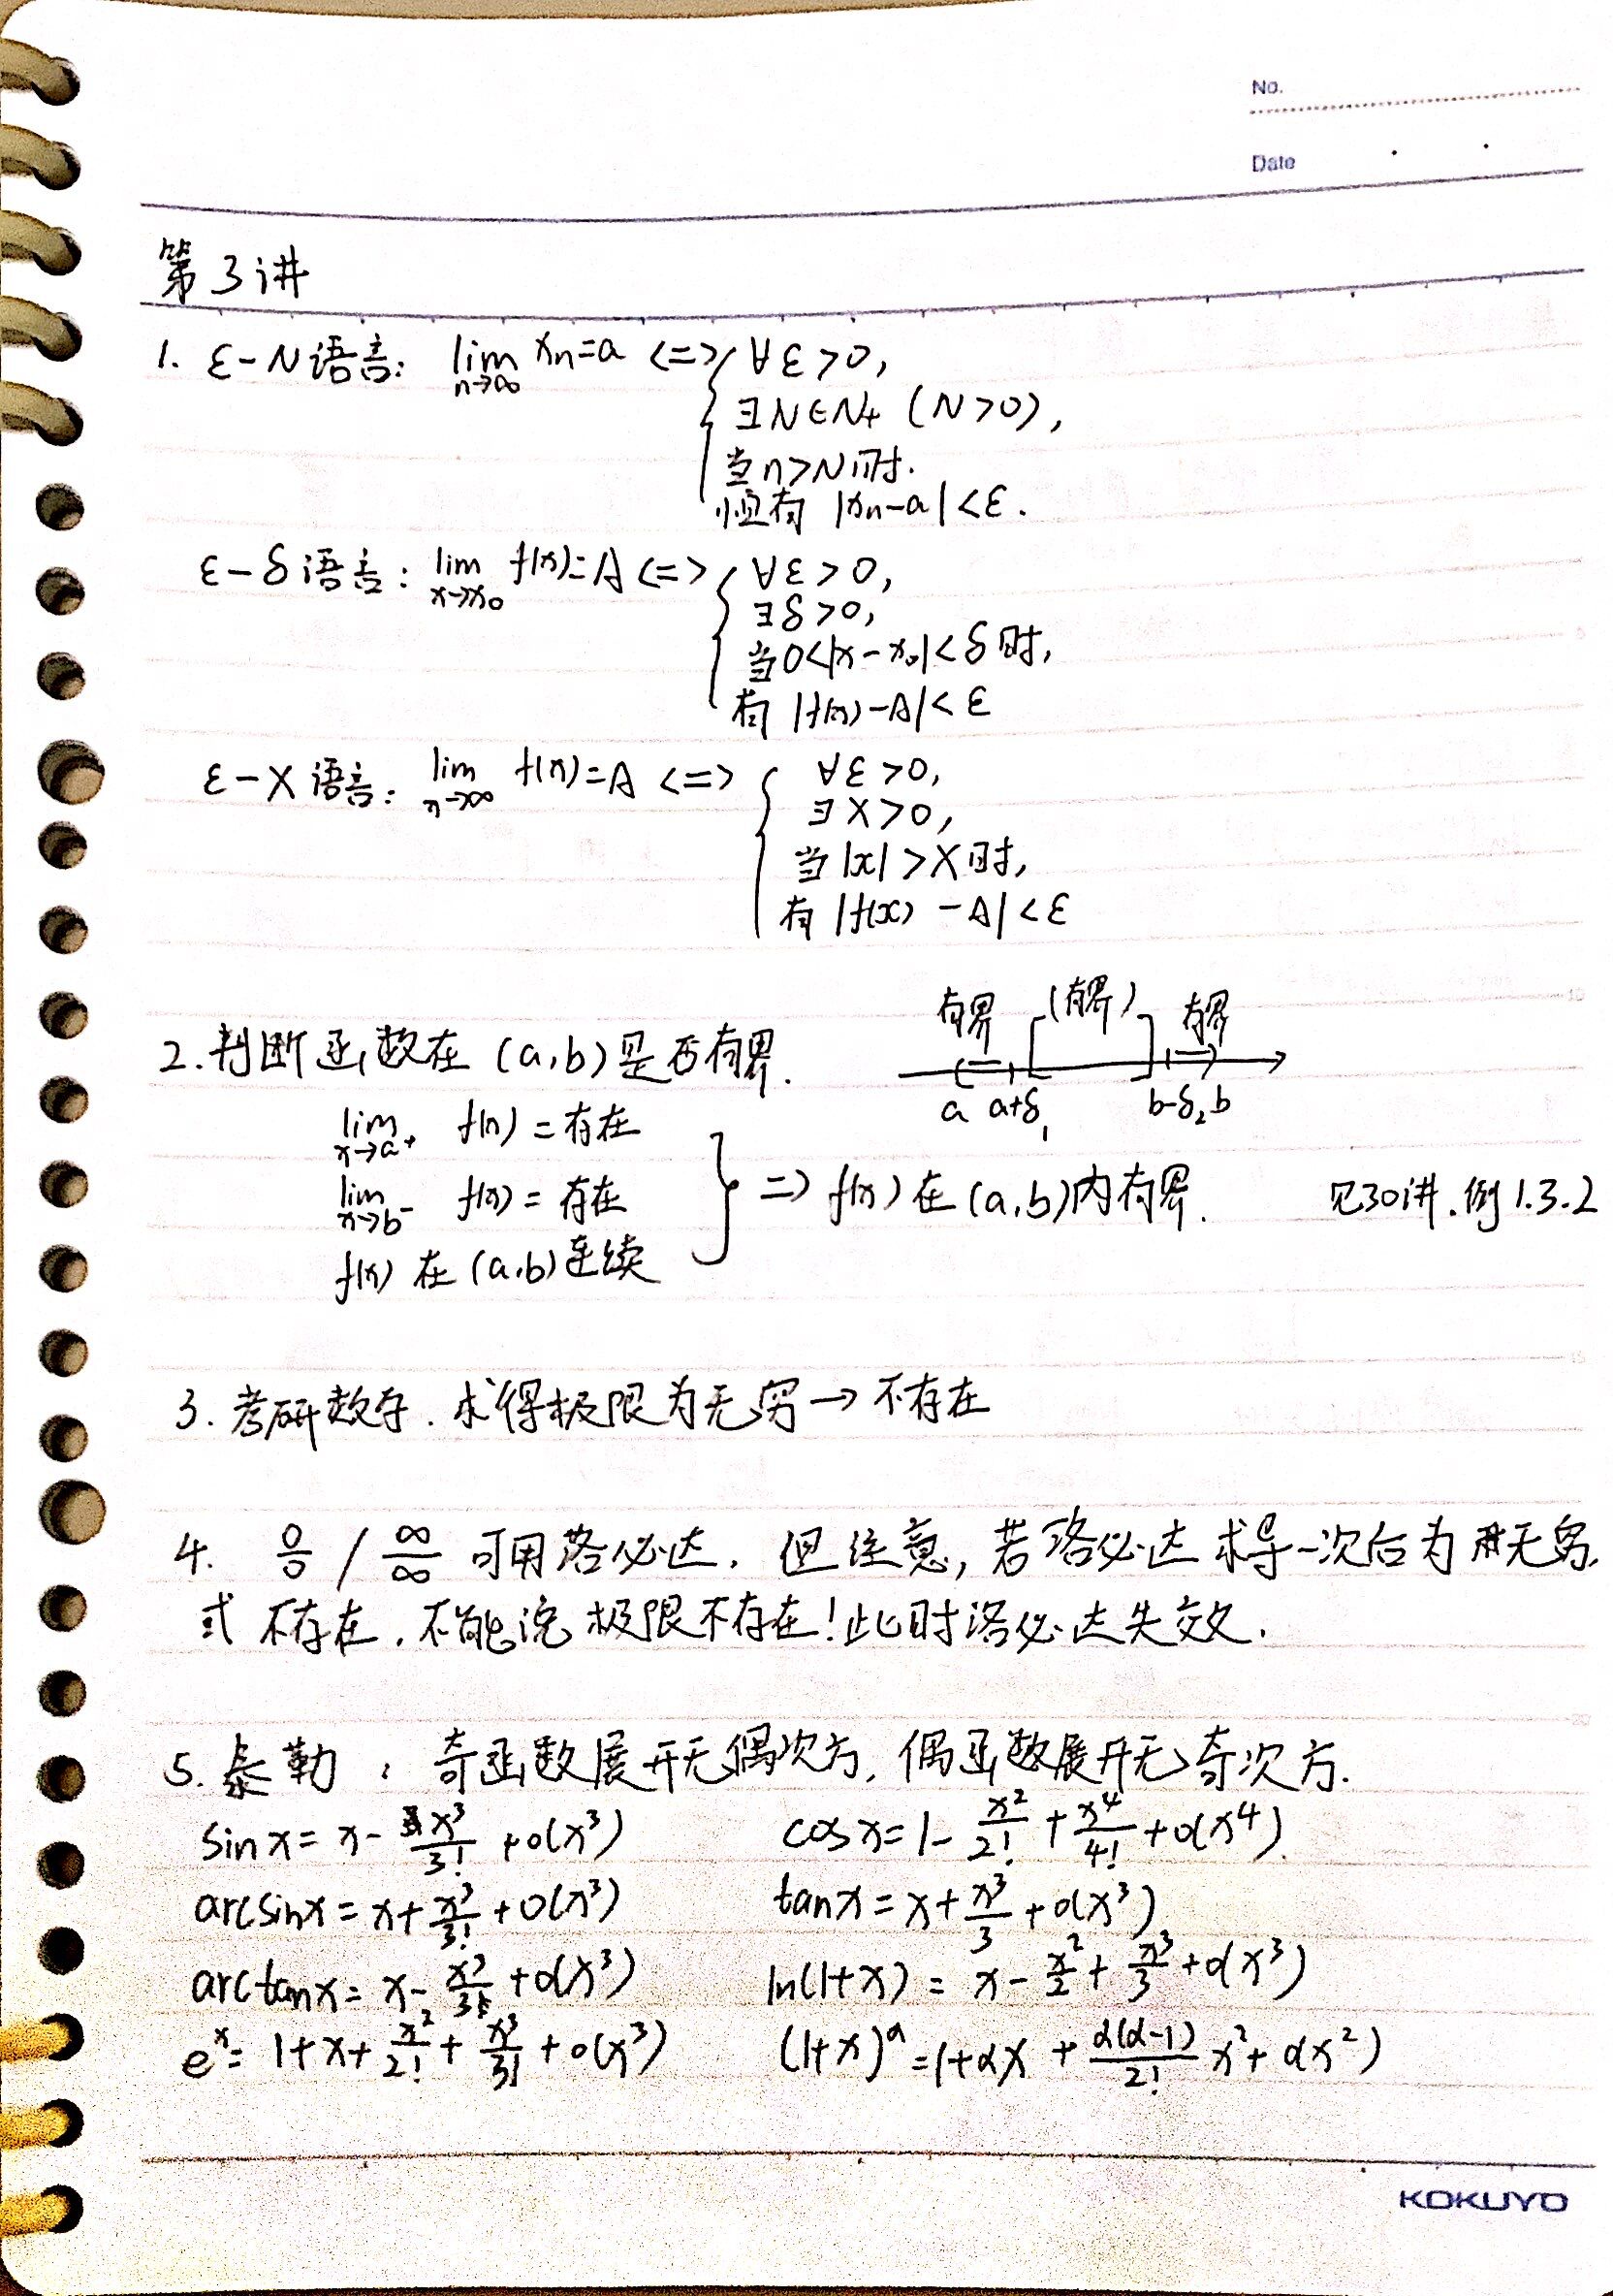 No.
Date
第3讲
1. ε-N语言: lim_{n→∞} xn=a <=> { ∀ε>0,
∃N∈N+ (N>0),
当n>N时.
恒有 |xn-a|<ε.
ε-δ语言: lim_{x→x0} f(x)=A <=> { ∀ε>0,
∃δ>0,
当0<|x-x0|<δ时,
有 |f(x)-A|<ε
ε-X语言: lim_{x→∞} f(x)=A <=> { ∀ε>0,
∃X>0,
当|x|>X时,
有|f(x)-A|<ε
有界 (有界) 有界
2.判断函数在(a,b)是否有界.
a a+δ1 b-δ2 b
lim_{x→a+} f(x)=存在
lim_{x→b-} f(x)=存在
f(x)在(a,b)连续
} => f(x)在(a,b)内有界. 见30讲.例1.3.2
3.考研数学.求得极限为无穷→不存在
4. 0/0 / ∞/∞ 可用洛必达, 但注意,若洛必达求导一次后为无穷
或不存在,不能说极限不存在!此时洛必达失效.
5.泰勒: 奇函数展开无偶次方,偶函数展开无奇次方.
sinx=x-x³/3!+o(x³) cosx=1-x²/2!+x⁴/4!+o(x⁴).
arcsinx=x+x³/3!+o(x³) tanx=x+x³/3+o(x³)
arctanx=x-x³/3+o(x³) ln(1+x)=x-x²/2+x³/3+o(x³)
eˣ=1+x+x²/2!+x³/3!+o(x³) (1+x)^α=1+αx+α(α-1)/2! x²+o(x²)
KOKUYO